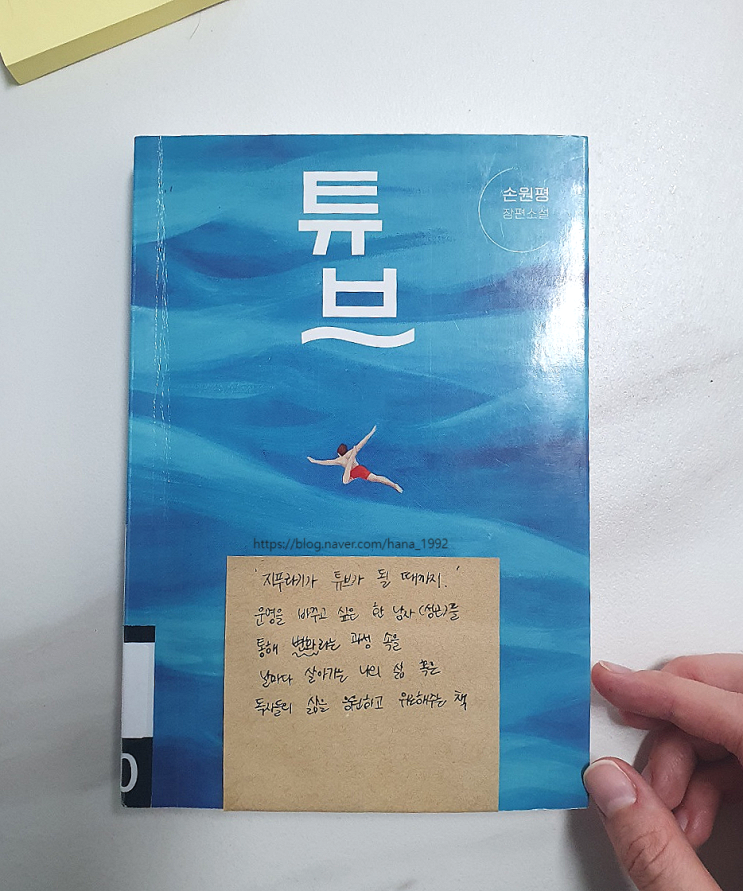 튜
브
손원평
장편소설
https://blog.naver.com/hana_1992
'지푸라기가 튜브가 될 때까지.'
운명을 바꾸고 싶은 한 남자(성곤)를
통해 변화라는 과정 속을
날마다 살아가는 나의 삶 혹은
독자들의 삶을 응원하고 위로해주는 책
0